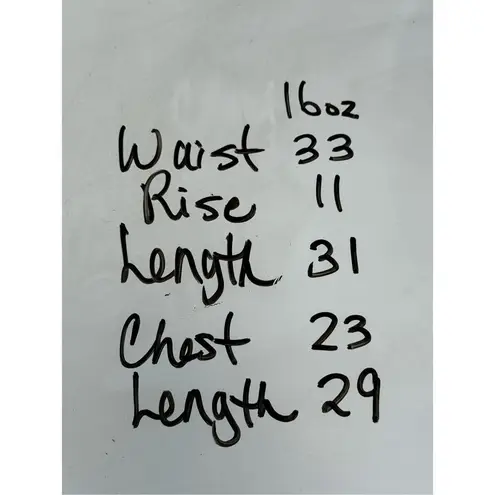 16oz
Waist 33
Rise 11
Length 31
Chest 23
Length 29